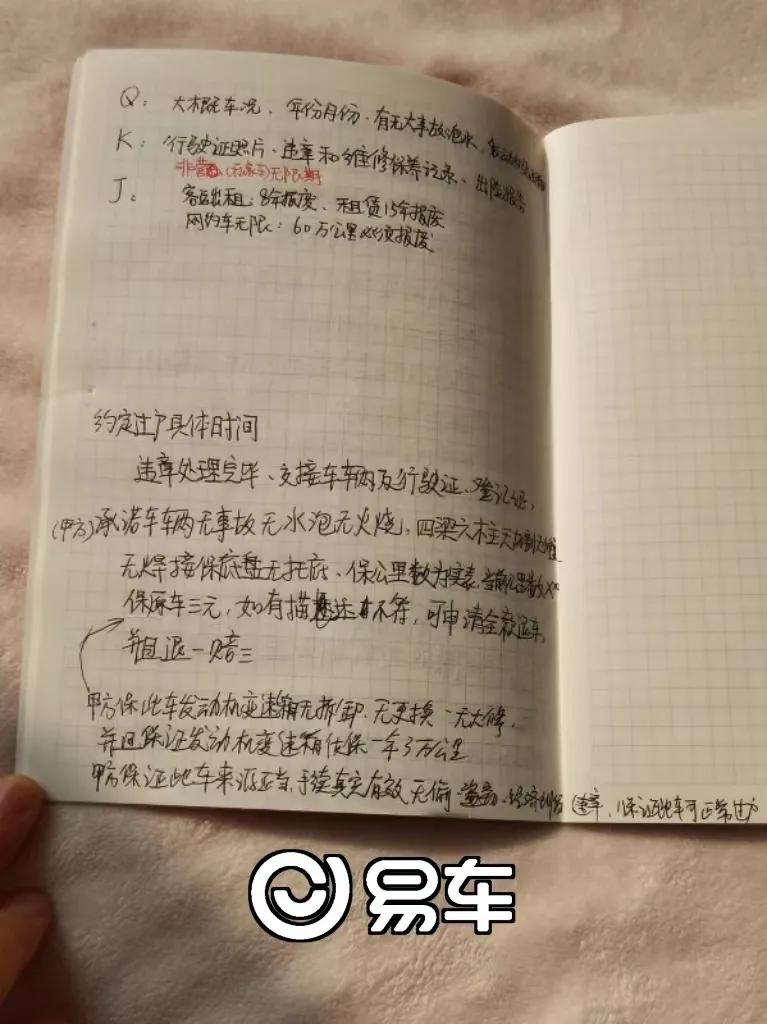 Q: 大概车况、年份月份、有无大事故泡水、
K: 行驶证照片、违章和维修保养记录、出险报告
非营(私家车)无限期
J: 客运出租:8年报废、租赁15年报废
网约车无限:60万公里必须报废
约定过户具体时间
违章处理完毕、交接车辆及行驶证、登记证,
(甲方)承诺车辆无事故无水泡无火烧,四梁六柱无切割
无焊接保底盘无托底、保公里数为实表,当前公里数XX
保原车三元,如有描述不符,可申请全额退车,
并且退一赔三
甲方保此车发动机变速箱无拆卸、无更换、无大修,
并且保证发动机变速箱质保一年3万公里
甲方保证此车来源正当,手续真实有效无偷 盗抢、经济纠纷 违章,保证此车可正常过户
易车